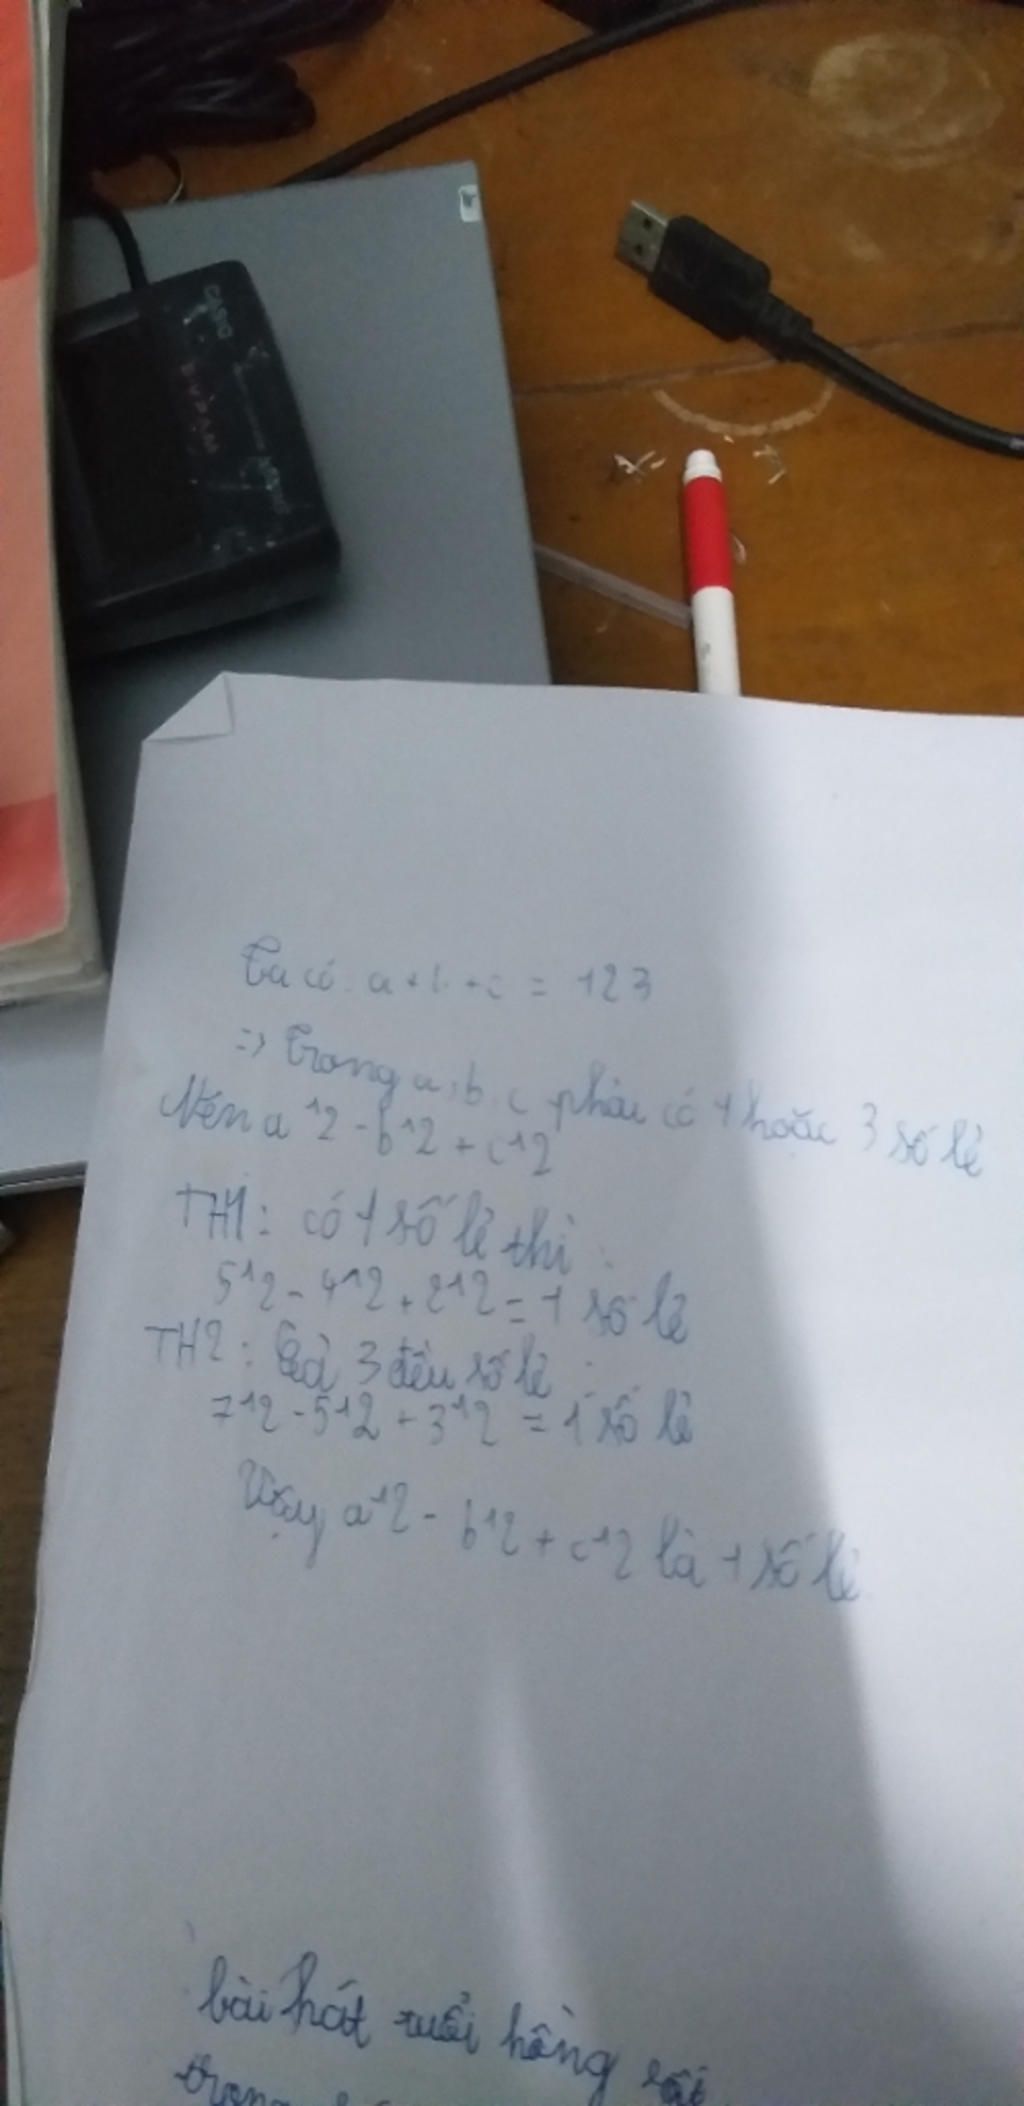 CASIO
Ta có: a+b+c = 123
=> Trong a, b, c phải có 1 hoặc 3 số lẻ
Nên a^12 - b^12 + c^12
TH1: có 1 số lẻ thì:
5^12 - 4^12 + 2^12 = 1 số lẻ
TH2: Cả 3 đều số lẻ:
7^12 - 5^12 + 3^12 = 1 số lẻ
Vậy a^12 - b^12 + c^12 là 1 số lẻ
bài hát tuổi hồng
trong